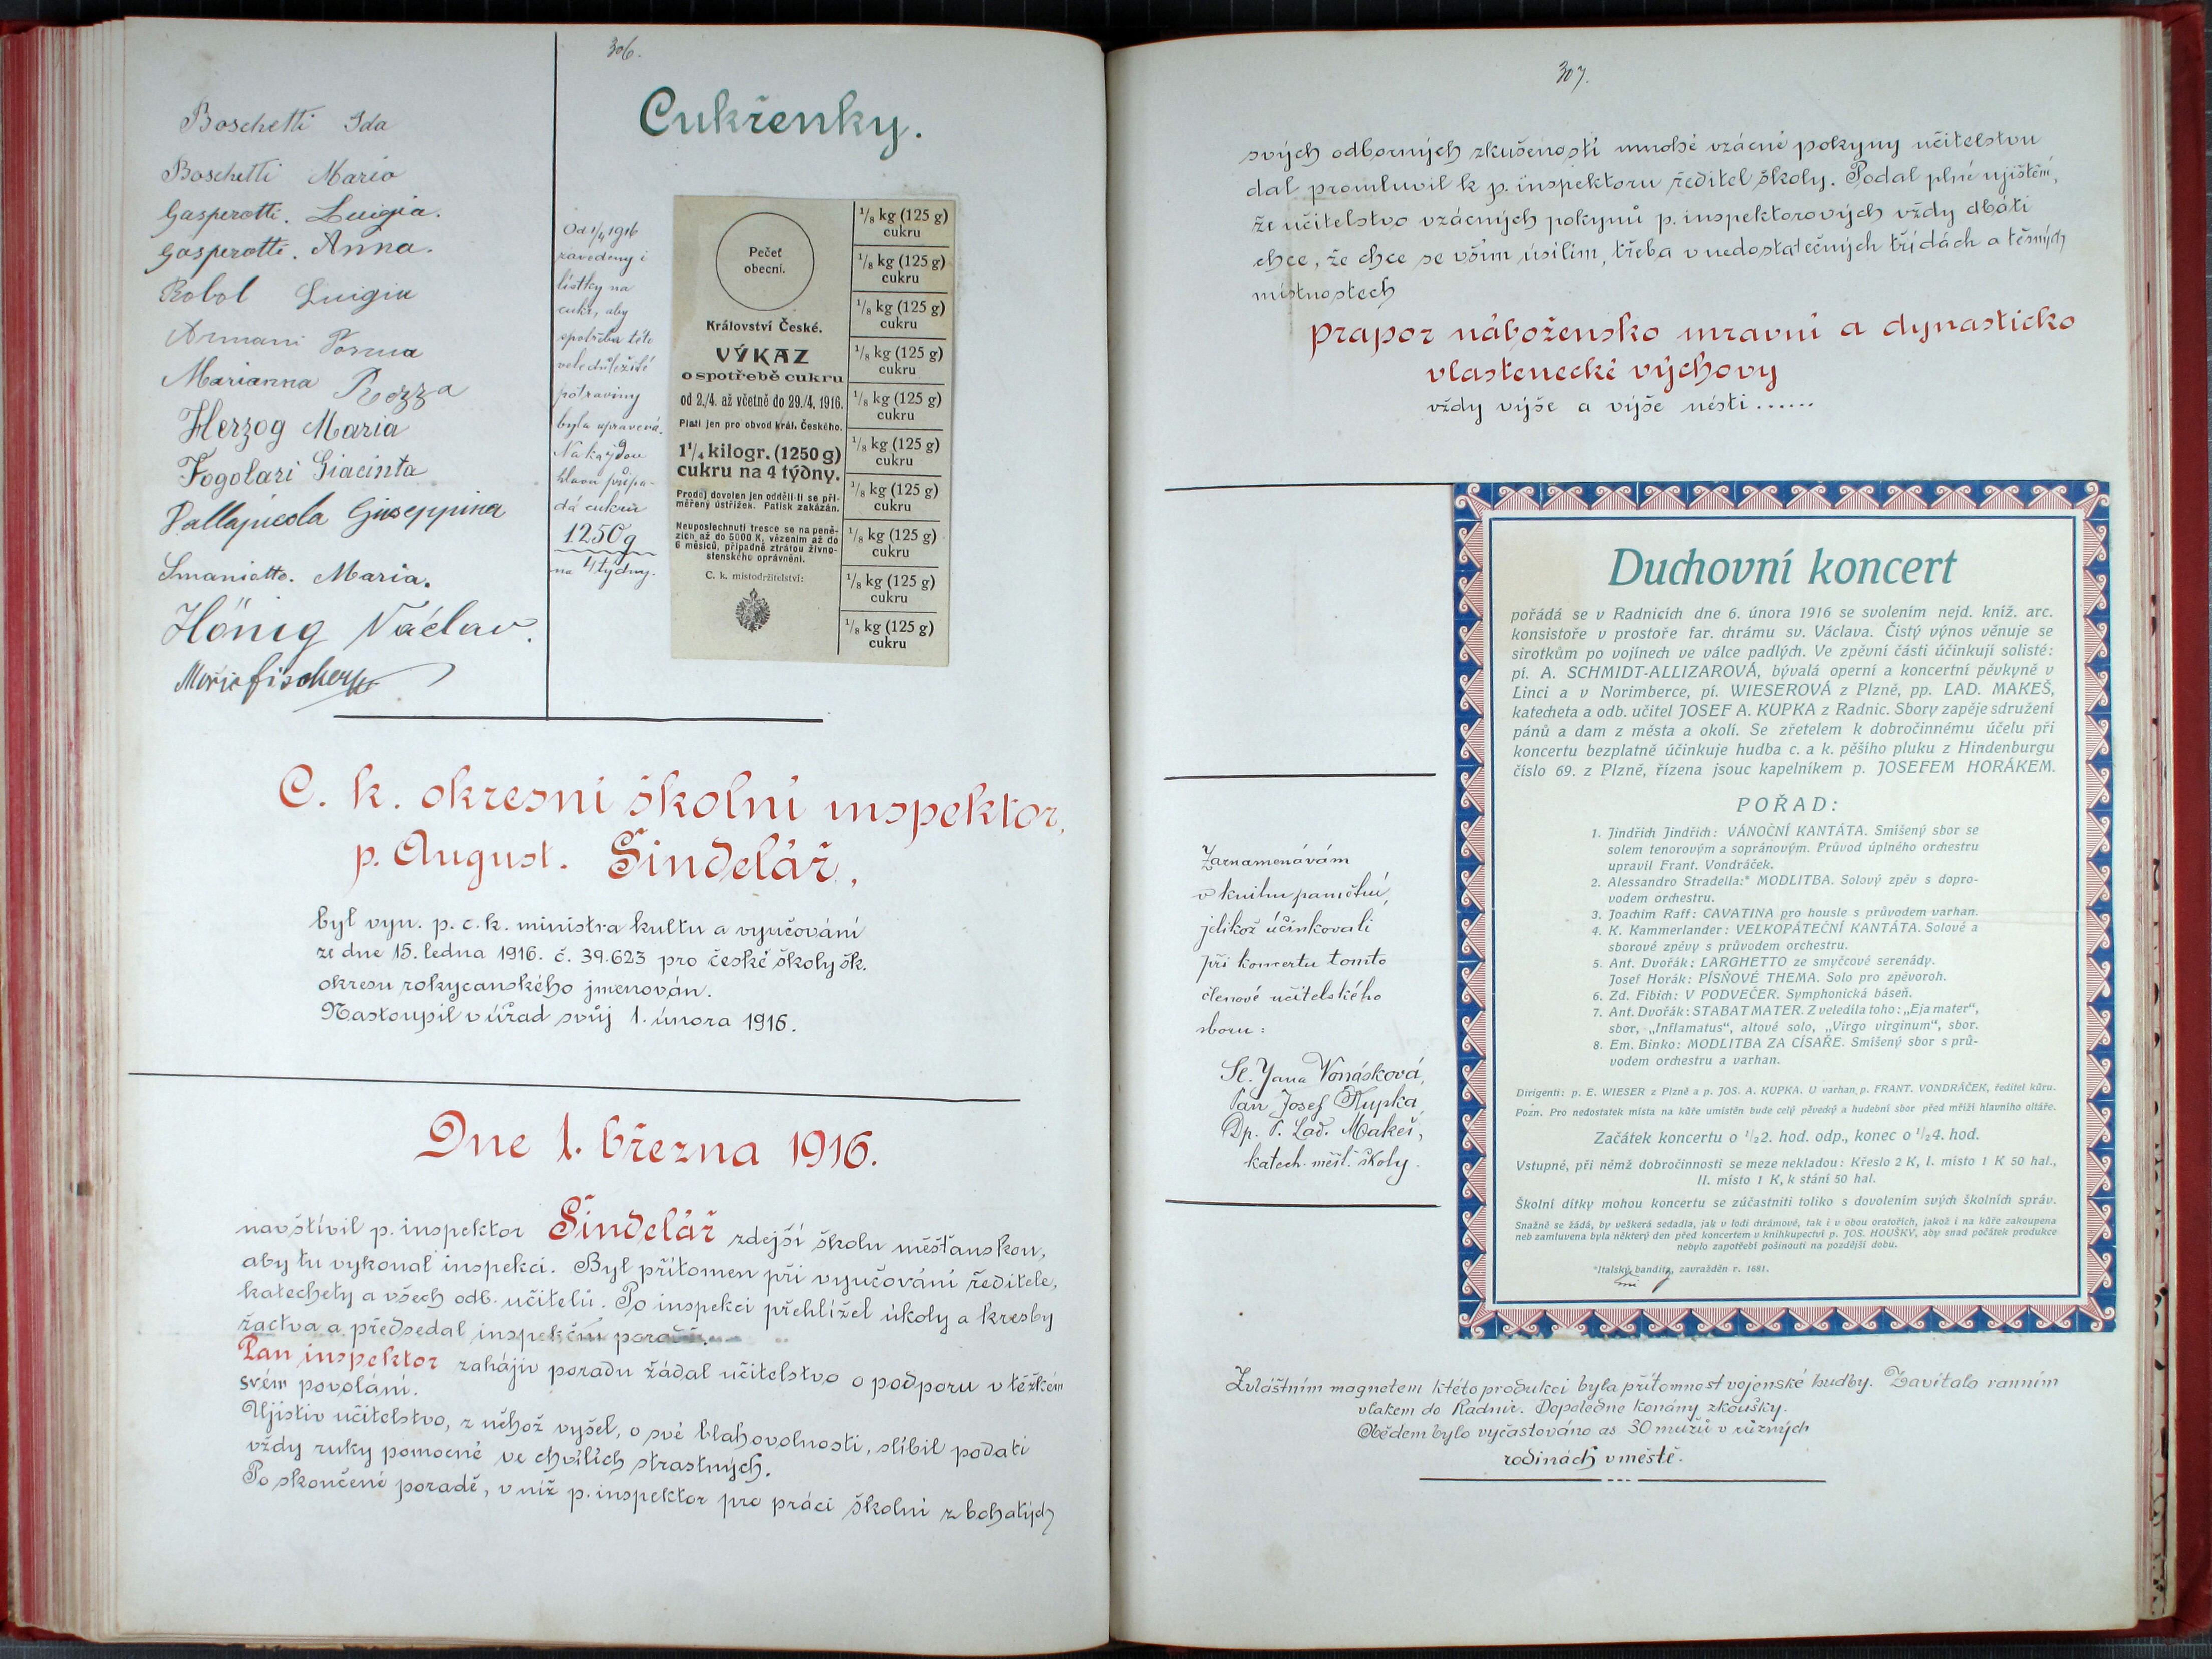 306.
Boschetti Ida
Boschetti Maria
Gasperotti. Luigia.
Gasperotti. Anna.
Robol Luigia
Armani
Marianna Rozza
Herzog Maria
Fogolari Giacinta
Dallapicola Giuseppina
Smaniotto. Maria.
Hönig Václav.
Cukřenky.
Od 1/4 1916
zavedeny i
lístky na
cukr, aby
spotřeba této
veledůležité
potraviny
byla upravena.
Na každou
hlavu připa-
dá cukru
1250 g
na 4 týdny.
Pečeť
obecní.
Království České.
VÝKAZ
o spotřebě cukru
od 2./4. až včetně do 29./4. 1916.
Platí jen pro obvod král. Českého.
1 1/4 kilogr. (1250 g)
cukru na 4 týdny.
Prodej dovolen jen oddělí-li se při-
měřený ústřižek. Patisk zakázán.
Neuposlechnutí tresce se na peně-
zích až do 5000 K, vězením až do
6 měsíců, případně ztrátou živno-
stenského oprávnění.
C. k. místodržitelství:
1/8 kg (125 g)
cukru
1/8 kg (125 g)
cukru
1/8 kg (125 g)
cukru
1/8 kg (125 g)
cukru
1/8 kg (125 g)
cukru
1/8 kg (125 g)
cukru
1/8 kg (125 g)
cukru
1/8 kg (125 g)
cukru
1/8 kg (125 g)
cukru
1/8 kg (125 g)
cukru
C. k. okresní školní inspektor,
p. August. Šindelář,
byl vyn. p. c. k. ministra kultu a vyučování
ze dne 15. ledna 1916. č. 39.623 pro české školy šk.
okresu rokycanského jmenován.
Nastoupil v úřad svůj 1. února 1916.
Dne 1. března 1916.
navštívil p. inspektor Šindelář zdejší školu měšťanskou,
aby tu vykonal inspekci. Byl přítomen při vyučování ředitele,
katechety a všech odb. učitelů. Po inspekci přehlížel úkoly a kresby
žactva a předsedal inspekční poradě.
Pan inspektor zahájiv poradu žádal učitelstvo o podporu v těžkém
svém povolání.
Ujistiv učitelstvo, z něhož vyšel, o své blahovolnosti, slíbil podati
vždy ruky pomocné ve chvílích strastných.
Po skončené poradě, v níž p. inspektor pro práci školní z bohatých
307.
svých odborných zkušeností mnohé vzácné pokyny učitelstvu
dal promluvil k p. inspektoru ředitel školy. Podal plné ujištění,
že učitelstvo vzácných pokynů p. inspektorových vždy dbáti
chce, že chce se vším úsilím, třeba v nedostatečných třídách a těsných
místnostech
prapor nábožensko mravní a dynasticko
vlastenecké výchovy
vždy výše a výše nésti......
Zaznamenávám
v knihu pamětní,
jelikož účinkovali
při koncertu tomto
členové učitelského
sboru:
Sl. Jana Vonásková,
Pan Josef Kupka
Dp. P. Lad. Makeš,
katech. měšť. školy.
Duchovní koncert
pořádá se v Radnicích dne 6. února 1916 se svolením nejd. kníž. arc.
konsistoře v prostoře far. chrámu sv. Václava. Čistý výnos věnuje se
sirotkům po vojínech ve válce padlých. Ve zpěvní části účinkují solisté:
pí. A. SCHMIDT-ALLIZAROVÁ, bývalá operní a koncertní pěvkyně v
Linci a v Norimberce, pí. WIESEROVÁ z Plzně, pp. LAD. MAKEŠ,
katecheta a odb. učitel JOSEF A. KUPKA z Radnic. Sbory zapěje sdružení
pánů a dam z města a okolí. Se zřetelem k dobročinnému účelu při
koncertu bezplatně účinkuje hudba c. a k. pěšího pluku z Hindenburgu
číslo 69. z Plzně, řízena jsouc kapelníkem p. JOSEFEM HORÁKEM.
POŘAD:
1. Jindřich Jindřich: VÁNOČNÍ KANTÁTA. Smíšený sbor se
solem tenorovým a sopránovým. Průvod úplného orchestru
upravil Frant. Vondráček.
2. Alessandro Stradella:* MODLITBA. Solový zpěv s dopro-
vodem orchestru.
3. Joachim Raff: CAVATINA pro housle s průvodem varhan.
4. K. Kammerlander: VELKOPÁTEČNÍ KANTÁTA. Solové a
sborové zpěvy s průvodem orchestru.
5. Ant. Dvořák: LARGHETTO ze smyčcové serenády.
Josef Horák: PÍSŇOVÉ THEMA. Solo pro zpěvoroh.
6. Zd. Fibich: V PODVEČER. Symphonická báseň.
7. Ant. Dvořák: STABAT MATER. Z veledíla toho: „Eja mater“,
sbor, „Inflamatus“, altové solo, „Virgo virginum“, sbor.
8. Em. Binko: MODLITBA ZA CÍSAŘE. Smíšený sbor s prů-
vodem orchestru a varhan.
Dirigenti: p. E. WIESER z Plzně a p. JOS. A. KUPKA. U varhan p. FRANT. VONDRÁČEK, ředitel kůru.
Pozn. Pro nedostatek místa na kůře umístěn bude celý pěvecký a hudební sbor před mříží hlavního oltáře.
Začátek koncertu o 1/2 2. hod. odp., konec o 1/2 4. hod.
Vstupné, při němž dobročinnosti se meze nekladou: Křeslo 2 K, I. místo 1 K 50 hal.,
II. místo 1 K, k stání 50 hal.
Školní dítky mohou koncertu se zúčastniti toliko s dovolením svých školních správ.
Snažně se žádá, by veškerá sedadla, jak v lodi chrámové, tak i v obou oratořích, jakož i na kůře zakoupena
neb zamluvena byla některý den před koncertem v knihkupectví p. JOS. HOUŠKY, aby snad počátek produkce
nebylo zapotřebí pošinouti na pozdější dobu.
*Italský bandita, zavražděn r. 1681.
Zvláštním magnetem k této produkci byla přítomnost vojenské hudby. Zavítalo ranním
vlakem do Radnic. Dopoledne konány zkoušky.
Obědem bylo vyčastováno as 30 mužů v různých
rodinách v městě.